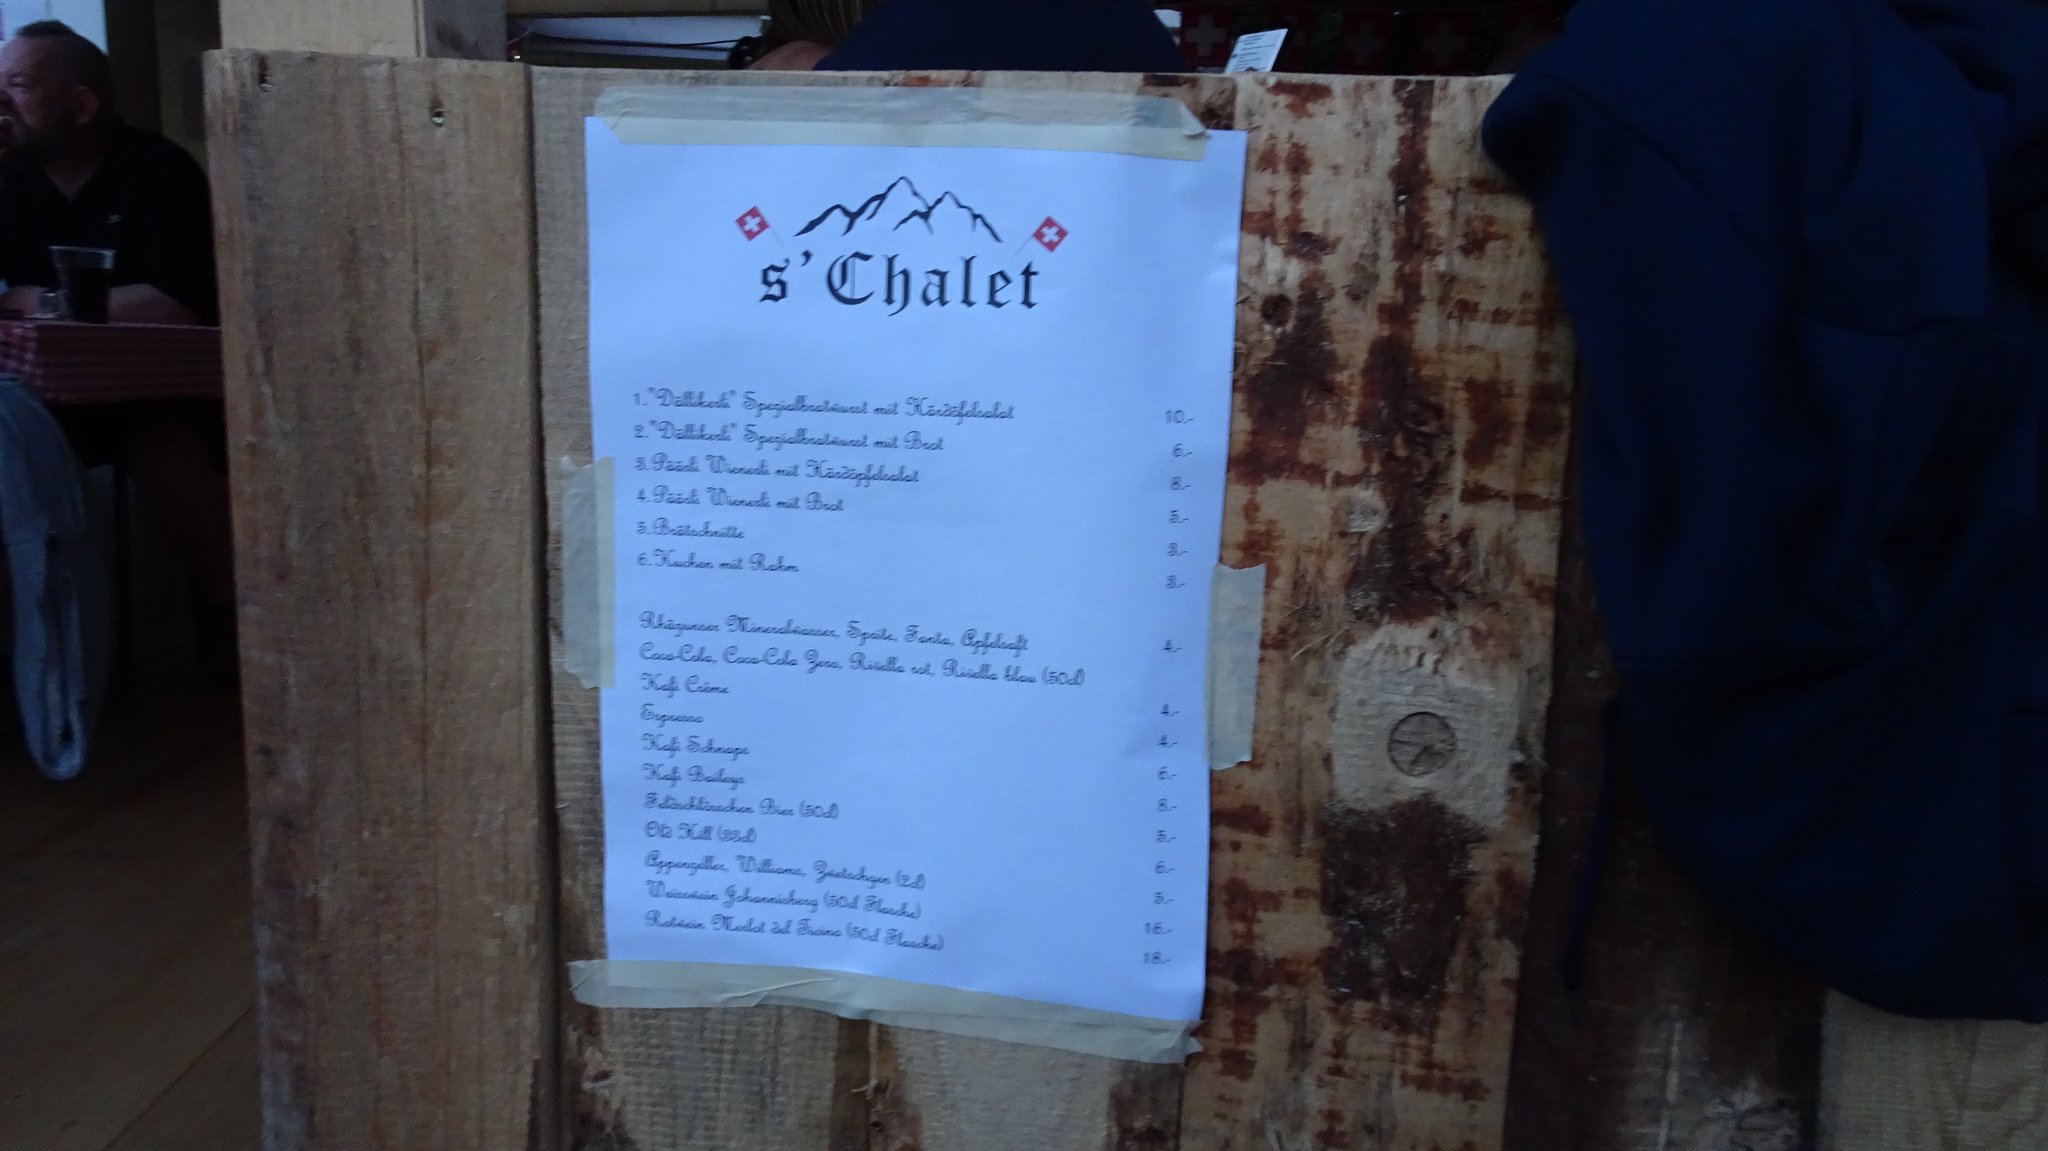 s'Chalet
1. "Dällikerli" Spezialbratwurst mit Härdöfelsalat 10.-
2. "Dällikerli" Spezialbratwurst mit Brot 6.-
3. Päärli Wienerli mit Härdöpfelsalat 8.-
4. Päärli Wienerli mit Brot 5.-
5. Brätschnitte 3.-
6. Kuchen mit Rahm 3.-
Rhäzünser Mineralwasser, Sprite, Fanta, Apfelsaft 4.-
Coca-Cola, Coca-Cola Zero, Rivella rot, Rivella blau (50cl)
Kafi Crème 4.-
Espresso 4.-
Kafi Schnaps 6.-
Kafi Baileys 8.-
Feldschlösschen Bier (50cl) 5.-
Old Hill (33cl) 6.-
Appenzeller, Williams, Zwetschgen (2cl) 5.-
Weisswein Johannisberg (50cl Flasche) 16.-
Rotwein Merlot del Ticino (50cl Flasche) 18.-